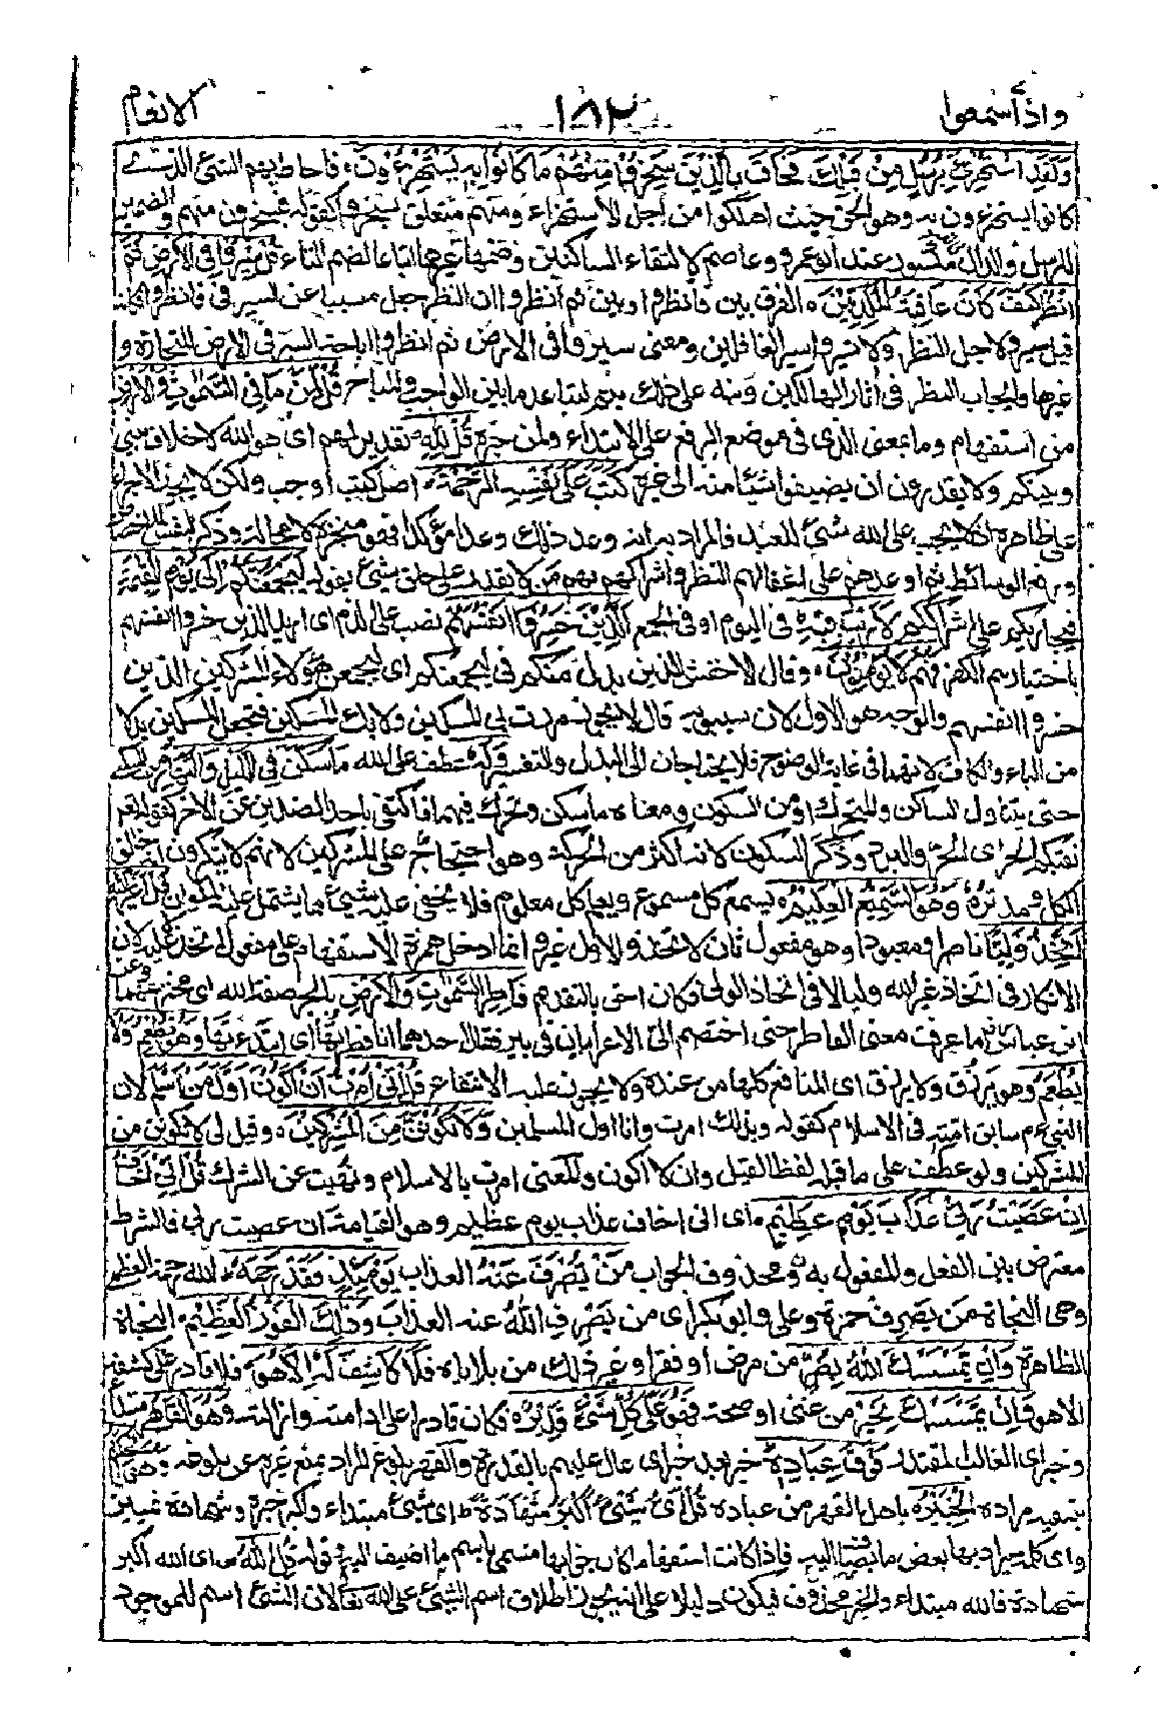 واذا سمعوا ١٨٢ الانعام
وَلَقَدِ اسْتُهْزِئَ بِرُسُلٍ مِنْ قَبْلِكَ فَحَاقَ بِالَّذِيْنَ سَخِرُوْا مِنْهُمْ مَا كَانُوْا بِهٖ يَسْتَهْزِءُوْنَ فاحاط بهم الشئ الذى
كانوا يستهزءون به وهو الحق حيث اهلكوا من اجل الاستهزاء ومنهم متعلق بسخروا كقوله فيسخرون منهم والضمير
للرسل والدال مكسور عند ابى عمرو وعاصم لالتقاء الساكنين وضمها غيرهما اتباعا لضم التاء قُلْ سِيْرُوْا فِى الْاَرْضِ ثُمَّ
انْظُرُوْا كَيْفَ كَانَ عَاقِبَةُ الْمُكَذِّبِيْنَ الفرق بين فانظروا وبين ثم انظروا ان النظر جعل مسببا عن السير فى فانظروا فكانه
قيل سيروا لاجل النظر ولا تسيروا سير الغافلين ومعنى سيروا فى الارض ثم انظروا اباحة السير فى الارض للتجارة و
غيرها وايجاب النظر فى اثار الهالكين ونبه على ذلك بثم لتباعد ما بين الواجب والمباح قُلْ لِمَنْ مَا فِى السَّمٰوٰتِ وَالْاَرْضِ
من استفهام وما بمعنى الذى فى موضع الرفع على الابتداء ولمن خبره قُلْ لِلّٰهِ تقرير لهم اى هو الله لاخلاف بينى
وبينكم ولا تقدرون ان تضيفوا شيئا منه الى غيره كَتَبَ عَلٰى نَفْسِهِ الرَّحْمَةَ اصل كتب اوجب ولكن لا يجوز الاجراء
على ظاهره اذ لا يجب على الله شئ للعبد فالمراد به انه وعد ذلك وعدا مؤكدا فهو منجزه لامحالة وذكر النفس للاختصاص
ورفع الوسائط ثم اوعدهم على اغفالهم النظر واشراكهم به من لا يقدر على خلق شئ بقوله لَيَجْمَعَنَّكُمْ اِلٰى يَوْمِ الْقِيٰمَةِ
فيجازيكم على اشراككم لَا رَيْبَ فِيْهِ فى اليوم او فى الجمع اَلَّذِيْنَ خَسِرُوْا اَنْفُسَهُمْ نصب على الذم اى اريد الذين خسروا انفسهم
باختيارهم الكفر فَهُمْ لَا يُؤْمِنُوْنَ وقال الاخفش الذين بدل من كم فى ليجمعنكم اى ليجمعن هؤلاء المشركين الذين
خسروا انفسهم والوجه هو الاول لان سيبويه قال لا يجوز مررت بى المسكين ولا بك المسكين فتجعل المسكين بدلا
من الياء والكاف لانهما فى غاية الوضوح فلا يحتاجان الى البدل والتفسير وَلَهٗ عطف على الله مَا سَكَنَ فِى الَّيْلِ وَالنَّهَارِ من السكنى
حتى يتناول الساكن والمتحرك او من السكون ومعناه ما سكن وتحرك فيهما فاكتفى باحد الضدين عن الاخر كقوله
تقيكم الحر اى الحر والبرد وذكر السكون لانه اكثر من الحركة وهو احتجاج على المشركين لانهم لاينكرون انه خالق
الكل ومدبره وَهُوَ السَّمِيْعُ الْعَلِيْمُ يسمع كل مسموع ويعلم كل معلوم فلا يخفى عليه شئ مما يشتمل عليه الملوان قُلْ اَغَيْرَ اللهِ
اَتَّخِذُ وَلِيًّا ناصرا ومعبودا وهو مفعول ثان لاتخذ والاول غير وانما ادخل همزة الاستفهام على مفعول اتخذ لا عليه لان
الانكار فى اتخاذ غير الله وليا لا فى اتخاذ الولى فكان احق بالتقديم فَاطِرِ السَّمٰوٰتِ وَالْاَرْضِ بالجر صفة لله اى مخترعهما وعن
ابن عباس ما عرفت معنى الفاطر حتى اختصم الى اعرابيان فى بير فقال احدهما انا فطرتها اى ابتدءتها وَهُوَ يُطْعِمُ وَلَا
يُطْعَمُ وهو يرزق ولا يرزق اى المنافع كلها من عنده ولا يجوز عليه الانتفاع قُلْ اِنِّىْ اُمِرْتُ اَنْ اَكُوْنَ اَوَّلَ مَنْ اَسْلَمَ لان
النبى ءم سابق امته فى الاسلام كقوله وبذلك امرت وانا اول المسلمين وَلَا تَكُوْنَنَّ مِنَ الْمُشْرِكِيْنَ وقيل لى لا تكونن من
المشركين ولو عطف على ما قبله لفظا لقيل وان لا اكون والمعنى امرت بالاسلام ونهيت عن الشرك قُلْ اِنِّىْ اَخَافُ
اِنْ عَصَيْتُ رَبِّىْ عَذَابَ يَوْمٍ عَظِيْمٍ اى انى اخاف عذاب يوم عظيم وهو القيامة ان عصيت ربى فالشرط
معترض بين الفعل والمفعول به محذوف الجواب مَنْ يُّصْرَفْ عَنْهُ العذاب يَوْمَئِذٍ فَقَدْ رَحِمَهٗ الله رحمة العظمى
وهى النجاة من يصرف حمزة وعلى وابو بكر اى من يصرف الله عنه العذاب وَذٰلِكَ الْفَوْزُ الْعَظِيْمُ النجاة
الظاهرة وَاِنْ يَّمْسَسْكَ اللهُ بِضُرٍّ من مرض او فقر او غير ذلك من بلاياه فَلَا كَاشِفَ لَهٗ اِلَّا هُوَ فلا قادر على كشفه
الا هو وَاِنْ يَّمْسَسْكَ بِخَيْرٍ من غنى او صحة فَهُوَ عَلٰى كُلِّ شَىْءٍ قَدِيْرٌ فكان قادرا على ادامته وازالته وَهُوَ الْقَاهِرُ مبتدأ
وخبر اى الغالب المقتدر فَوْقَ عِبَادِهٖ خبر بعد خبر اى عال عليهم بالقدرة والقهر بلوغ المراد بمنع غيره عن بلوغه وَهُوَ الْحَكِيْمُ
بتنفيذ مراده الْخَبِيْرُ باهل القهر من عباده قُلْ اَىُّ شَىْءٍ اَكْبَرُ شَهَادَةً اى شئ مبتداء واكبر خبره وشهادة تمييز
واى كلمة يراد بها بعض ما تضاف اليه فاذا كانت استفهاما كان جوابها مسمى باسم ما اضيف اليه قوله قُلِ اللهُ اى الله اكبر
شهادة فالله مبتداء والخبر محذوف فيكون دليلا على انه يجوز اطلاق اسم الشئ على الله تعالى لان الشئ اسم للموجود